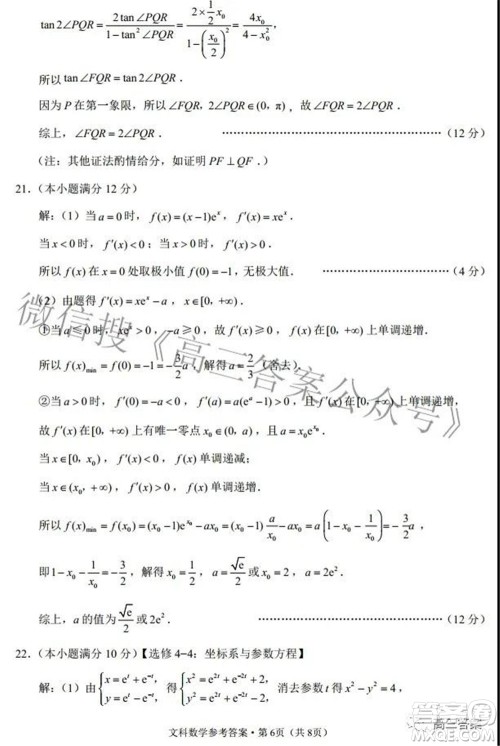 tan2∠PQR = 2tan∠PQR/(1−tan²∠PQR) = (2×(1/2)x₀)/(1−(x₀/2)²) = 4x₀/(4−x₀²)
所以 tan∠FQR = tan2∠PQR .
因为 P 在第一象限，所以∠FQR，2∠PQR∈(0, π)，故∠FQR = 2∠PQR .
综上，∠FQR = 2∠PQR . ……………………………………（12 分）
（注：其他证法酌情给分，如证明 PF⊥QF .）
21.（本小题满分 12 分）
解：（1）当 a = 0 时，f(x) = (x−1)eˣ，f′(x) = xeˣ .
当 x < 0 时，f′(x) < 0；当 x > 0 时，f′(x) > 0 .
所以 f(x) 在 x = 0 处取极小值 f(0) = −1，无极大值 . ……………………（4 分）
（2）由题得 f′(x) = xeˣ − a，
①当 a⩽0 时，xeˣ⩾0，故 f′(x)⩾0，f(x) 在 [0, +∞) 上单调递增 .
所以 f(x)min = f(0) = −1 = −(3/2)a，解得 a = 2/3（舍去）.
②当 a > 0 时，f′(0) < 0，f′(a) = a(eᵃ − 1) > 0，且 f′(x) 在 [0, +∞) 上单调递增，
故 f′(x) 在 [0, +∞) 上有唯一零点 x₀∈(0, a)，且 a = x₀e^{x₀} .
当 x∈[0, x₀)，f′(x) < 0，f(x) 单调递减；
当 x∈(x₀, +∞)，f′(x) > 0，f(x) 单调递增 .
所以 f(x)min = f(x₀) = (x₀−1)e^{x₀} − ax₀ = (x₀−1)(a/x₀) − ax₀ = a(1 − x₀ − 1/x₀) = −(3/2)a，
即 1 − x₀ − 1/x₀ = −3/2，解得 x₀ = 1/2，a = √e/2 或 x₀ = 2，a = 2e² .
综上，a 的值为 √e/2 或 2e² . ……………………………………（12 分）
22.（本小题满分 10 分）【选修 4−4：坐标系与参数方程】
解：（1）由 {x = eᵗ + e⁻ᵗ, y = eᵗ − e⁻ᵗ, 得 {x² = e²ᵗ + e⁻²ᵗ + 2, y² = e²ᵗ + e⁻²ᵗ − 2, 消去参数 t 得 x² − y² = 4，
文科数学参考答案・第 6 页（共 8 页）
微信搜《高三答案公众号》
高三答案